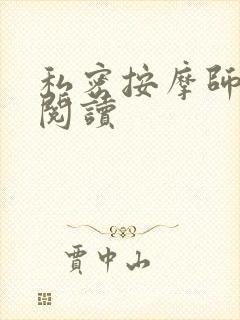 私密按摩師
閱讀
賈中山